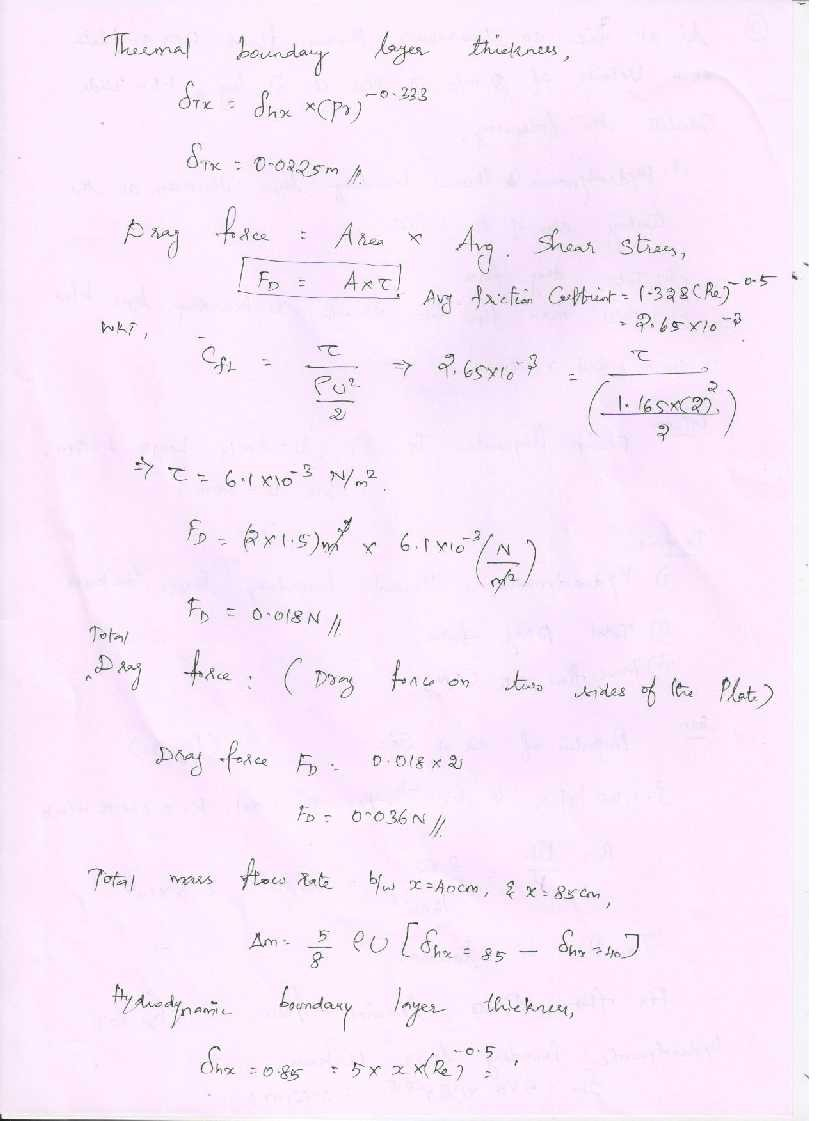 Thermal boundary layer thickness,
δTx = δhx × (Pr)^-0.333
δTx = 0.0225m //.
Drag force = Area × Avg. Shear Stress,
FD = A×τ
Avg friction Coefficient = 1.328 (Re)^-0.5
= 2.65×10^-3
WKT,
C̄fL = τ / (ρU²/2) ⇒ 2.65×10^-3 = τ / (1.165×(2)²/2)
⇒ τ = 6.1×10^-3 N/m².
FD = (2×1.5)m² × 6.1×10^-3 (N/m²)
FD = 0.018N //
Total
Drag force: (Drag force on two sides of the Plate)
Drag force FD = 0.018×2
FD = 0.036N //
Total mass flow rate b/w x=40cm, & x=85cm,
Δm = 5/8 ρU [δhx=85 − δhx=40]
Hydrodynamic boundary layer thickness,
δhx=0.85 = 5 × x × (Re)^-0.5 =